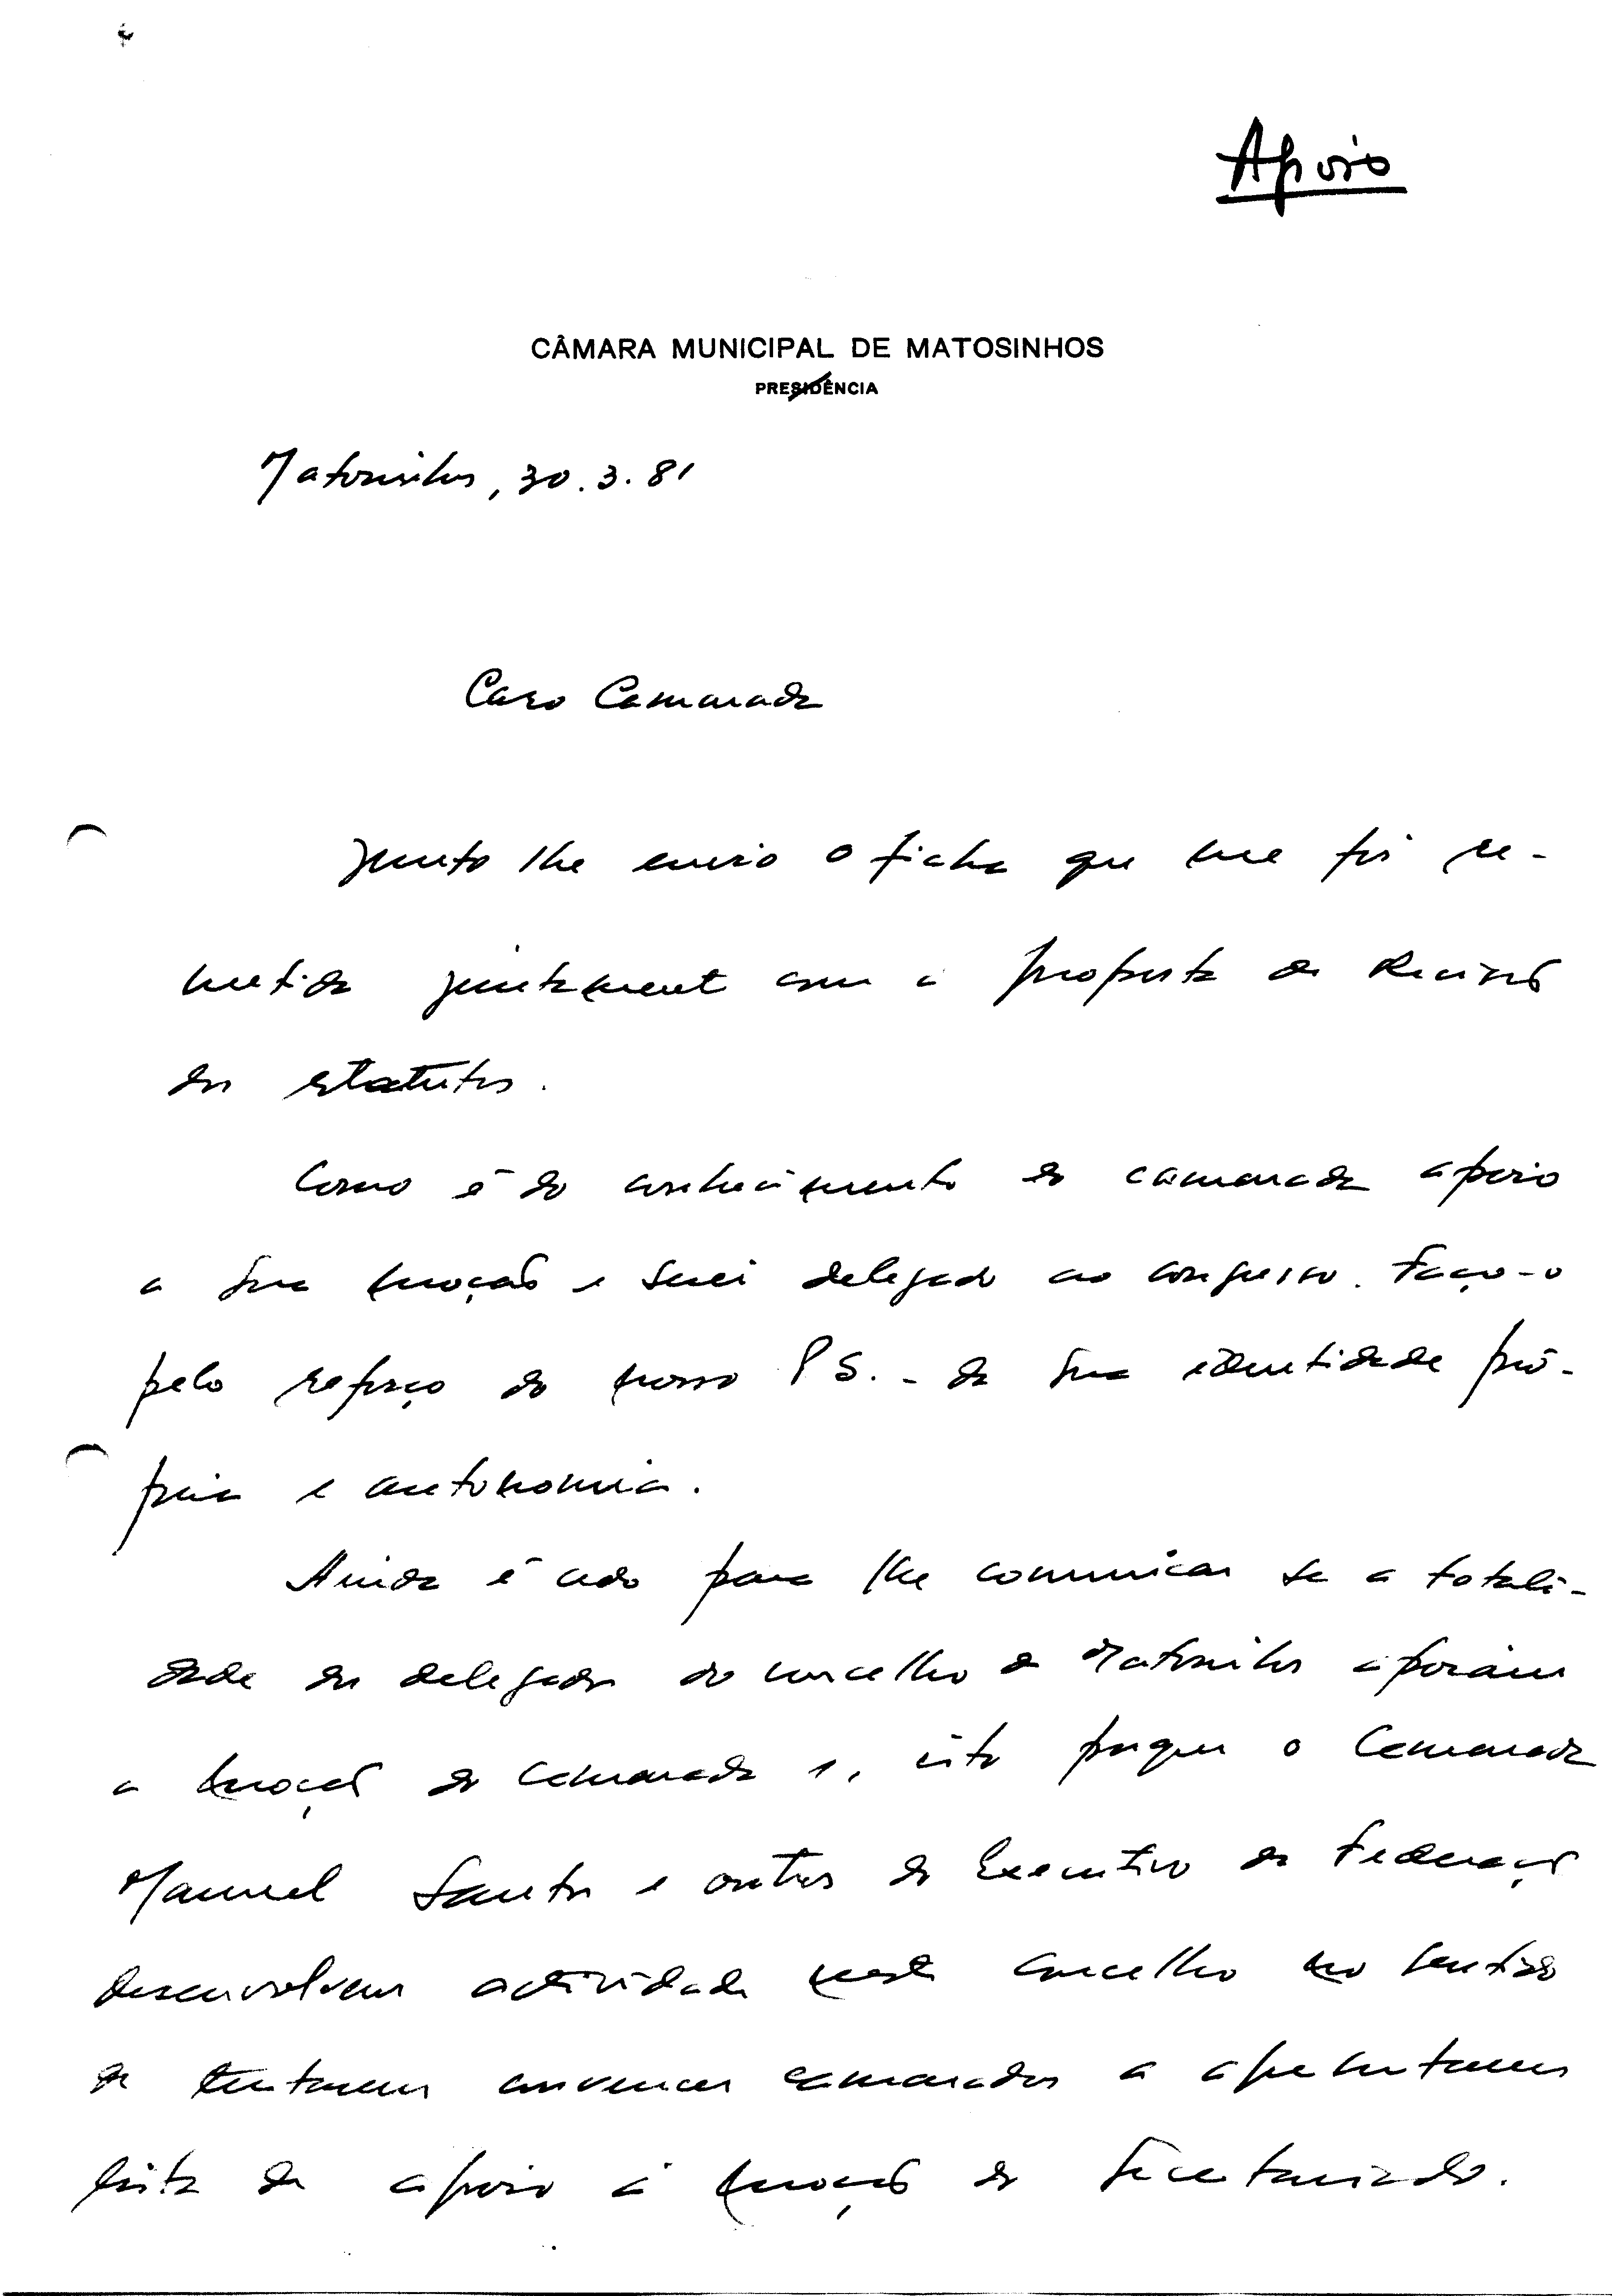 Apoio
CÂMARA MUNICIPAL DE MATOSINHOS
PRESIDÊNCIA
Matosinhos, 30.3.81
Caro Camarada
Junto lhe envio a ficha que me foi re-
metida juntamente com a proposta de Revisão
dos estatutos.
Como é do conhecimento do camarada apoio
a sua moção e serei delegado ao congresso. Faço-o
pelo reforço do nosso P S. - da sua identidade pró-
pria e autonomia.
Ainda é cedo para lhe comunicar se a totali-
dade dos delegados do concelho de Matosinhos apoiam
a moção do camarada e, isto porque o Camarada
Manuel Santos e outros do Executivo da Federação
desenvolvem actividade neste concelho no sentido
de tentarem convencer camaradas a apresentarem
lista de apoio à moção do Secretariado.